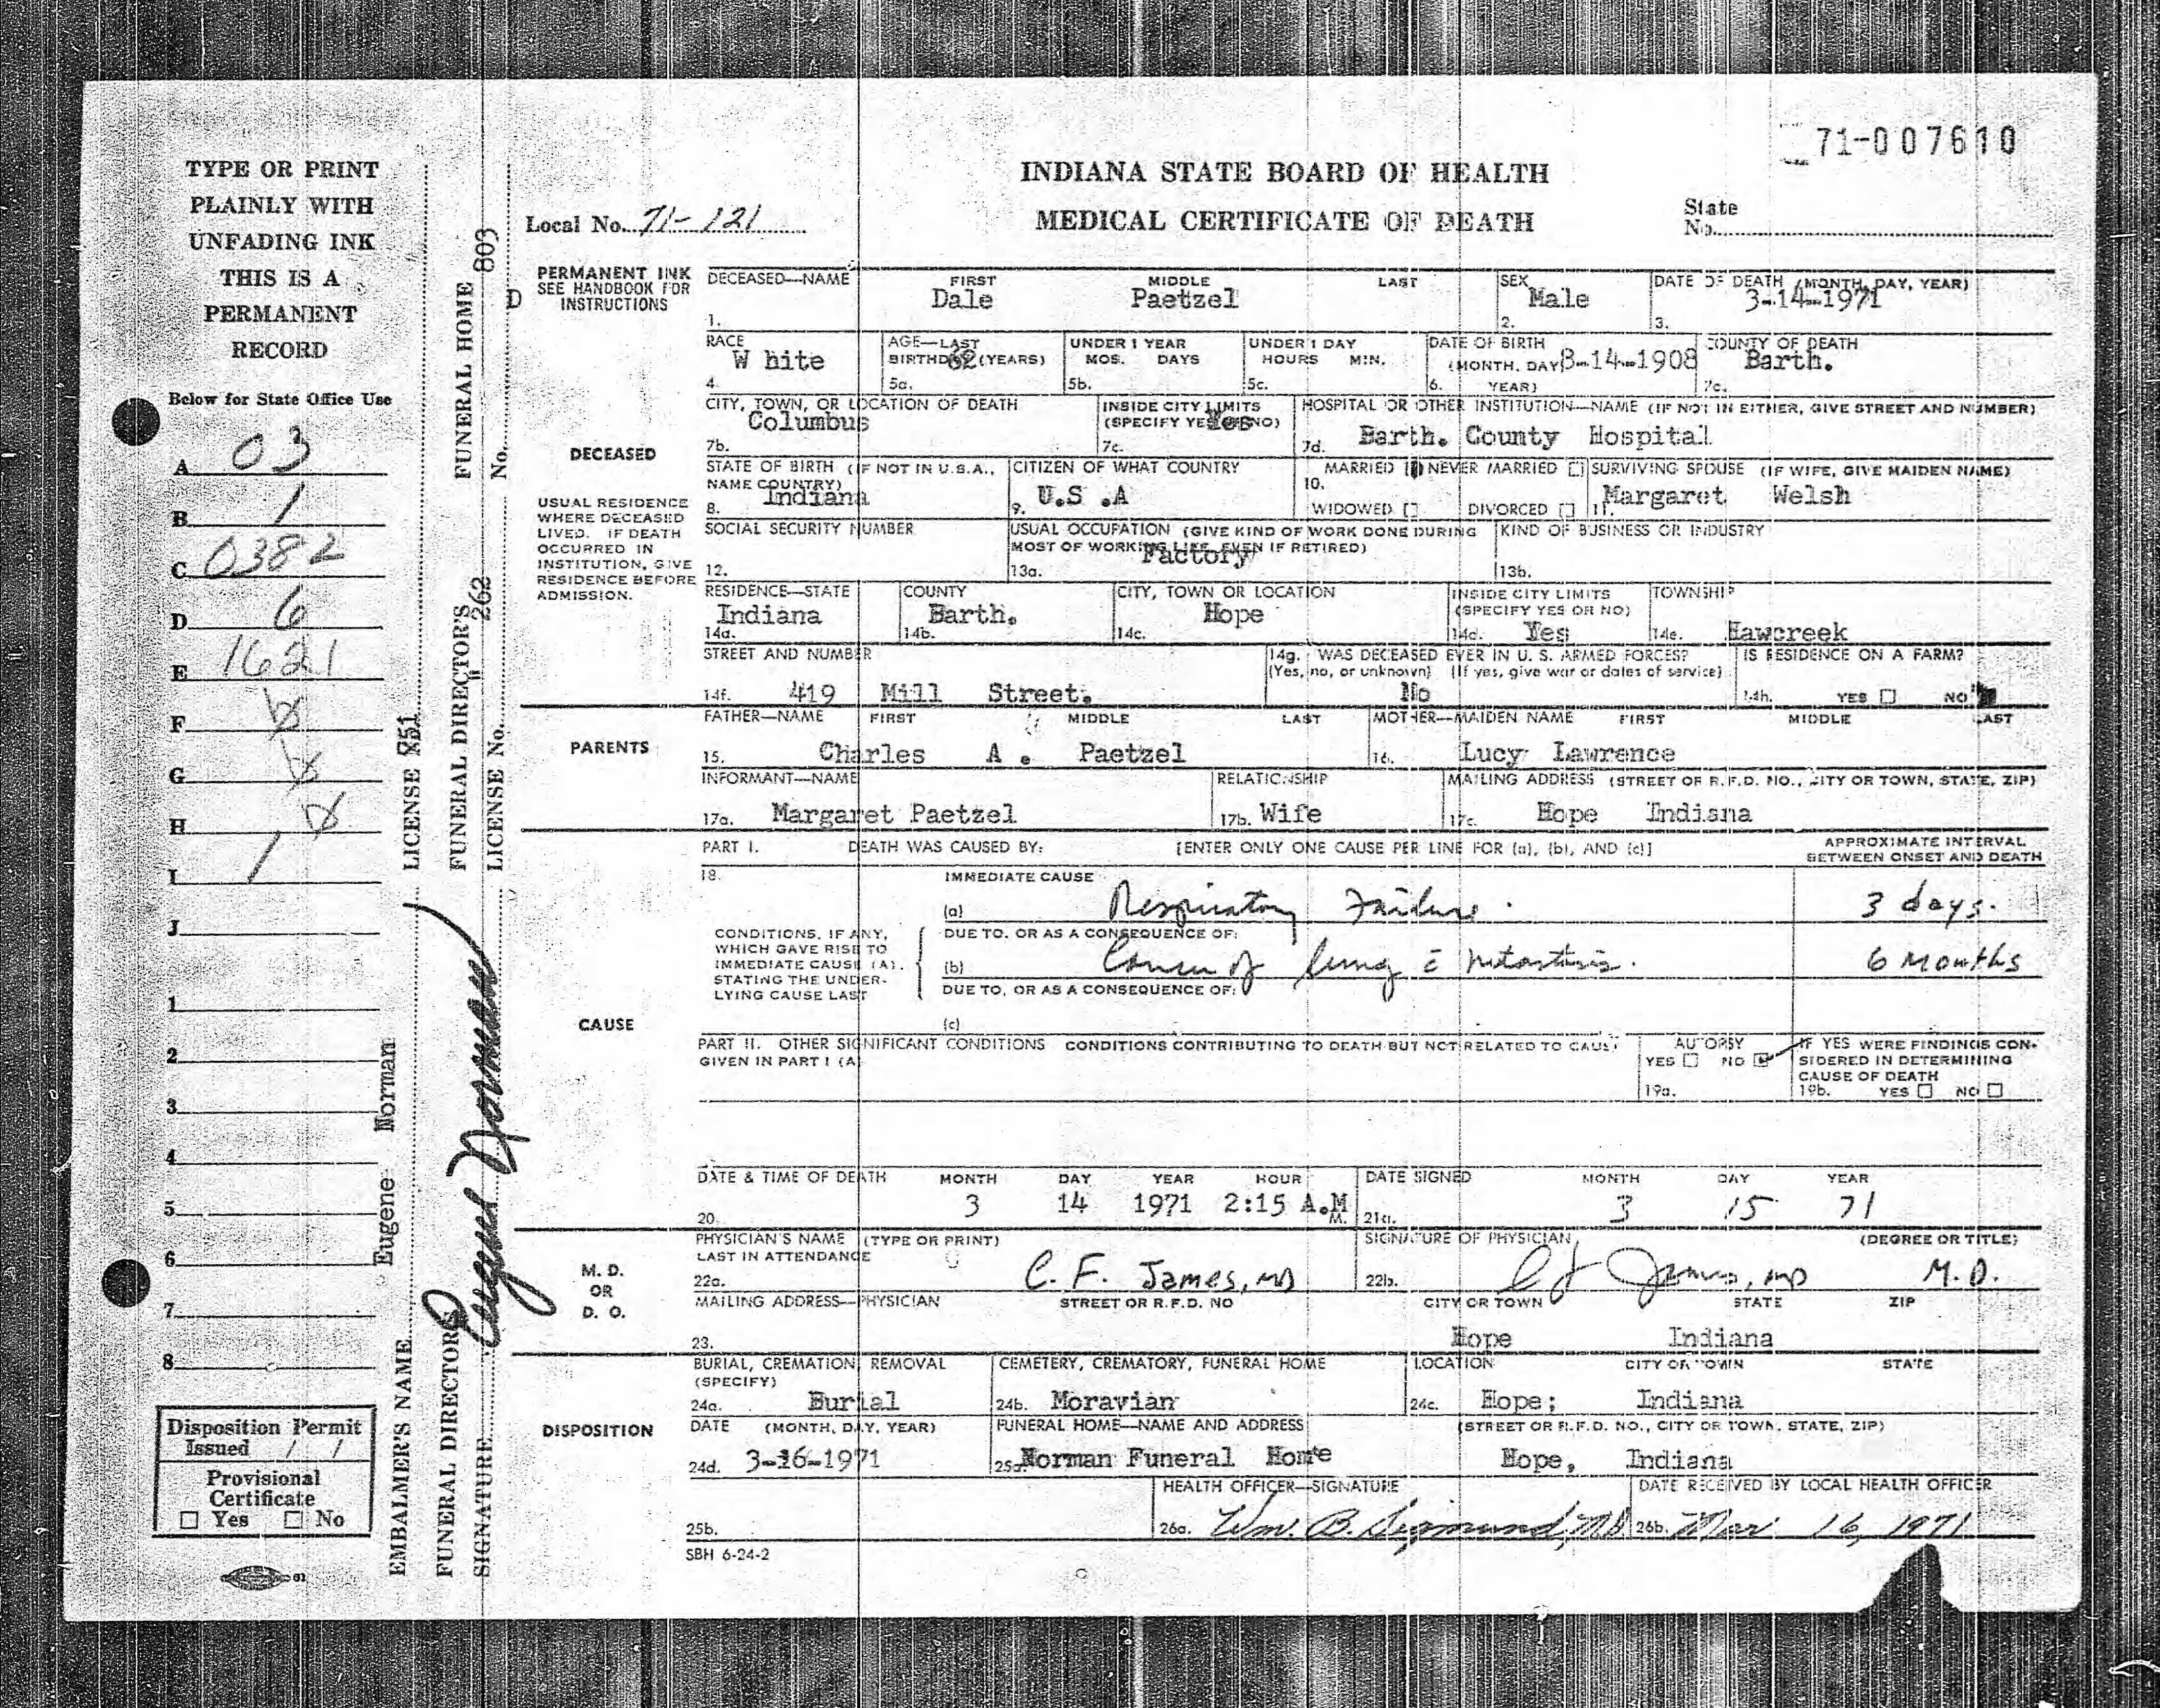 71-007610
INDIANA STATE BOARD OF HEALTH
MEDICAL CERTIFICATE OF DEATH
Local No. 71-121
State No.
TYPE OR PRINT
PLAINLY WITH
UNFADING INK
THIS IS A
PERMANENT
RECORD
Below for State Office Use
A 03
B 1
C 0382
D 6
E 1621
F
G
H
I 1
J
1
2
3
4
5
6
7
8
Disposition Permit
Issued / /
Provisional
Certificate
☐ Yes ☐ No
EMBALMER'S NAME Eugene Norman LICENSE 851
FUNERAL DIRECTOR'S SIGNATURE Eugene Norman
FUNERAL DIRECTOR'S LICENSE No. " 262
FUNERAL HOME No. 803
D
PERMANENT INK
SEE HANDBOOK FOR
INSTRUCTIONS
DECEASED—NAME FIRST MIDDLE LAST
1. Dale Paetzel
SEX
2. Male
DATE OF DEATH (MONTH, DAY, YEAR)
3. 3-14-1971
RACE
4. W hite
AGE—LAST BIRTHDAY (YEARS)
5a. 62
UNDER 1 YEAR
MOS. DAYS
5b.
UNDER 1 DAY
HOURS MIN.
5c.
DATE OF BIRTH
(MONTH, DAY, YEAR)
6. 3-14-1908
COUNTY OF DEATH
7c. Barth.
DECEASED
USUAL RESIDENCE
WHERE DECEASED
LIVED. IF DEATH
OCCURRED IN
INSTITUTION, GIVE
RESIDENCE BEFORE
ADMISSION.
CITY, TOWN, OR LOCATION OF DEATH
7b. Columbus
INSIDE CITY LIMITS
(SPECIFY YES OR NO)
7c. Yes
HOSPITAL OR OTHER INSTITUTION—NAME (IF NOT IN EITHER, GIVE STREET AND NUMBER)
7d. Barth. County Hospital
STATE OF BIRTH (IF NOT IN U.S.A., NAME COUNTRY)
8. Indiana
CITIZEN OF WHAT COUNTRY
9. U.S .A
10. MARRIED NEVER MARRIED ☐
WIDOWED ☐ DIVORCED ☐
SURVIVING SPOUSE (IF WIFE, GIVE MAIDEN NAME)
11. Margaret Welsh
SOCIAL SECURITY NUMBER
12.
USUAL OCCUPATION (GIVE KIND OF WORK DONE DURING
MOST OF WORKING LIFE, EVEN IF RETIRED)
13a. Factory
KIND OF BUSINESS OR INDUSTRY
13b.
RESIDENCE—STATE
14a. Indiana
COUNTY
14b. Barth.
CITY, TOWN OR LOCATION
14c. Hope
INSIDE CITY LIMITS
(SPECIFY YES OR NO)
14d. Yes
TOWNSHIP
14e. Hawcreek
STREET AND NUMBER
14f. 419 Mill Street.
14g. WAS DECEASED EVER IN U. S. ARMED FORCES?
(Yes, no, or unknown) (If yes, give war or dates of service)
No
IS RESIDENCE ON A FARM?
14h. YES ☐ NO
PARENTS
FATHER—NAME FIRST MIDDLE LAST
15. Charles A . Paetzel
MOTHER—MAIDEN NAME FIRST MIDDLE LAST
16. Lucy Lawrence
INFORMANT—NAME
17a. Margaret Paetzel
RELATIONSHIP
17b. Wife
MAILING ADDRESS (STREET OF R.F.D. NO., CITY OR TOWN, STATE, ZIP)
17c. Hope Indiana
PART I. DEATH WAS CAUSED BY: [ENTER ONLY ONE CAUSE PER LINE FOR (a), (b), AND (c)]
APPROXIMATE INTERVAL
BETWEEN ONSET AND DEATH
18.
IMMEDIATE CAUSE
(a) Respiratory Failure. 3 days.
CONDITIONS, IF ANY,
WHICH GAVE RISE TO
IMMEDIATE CAUSE (A).
STATING THE UNDER-
LYING CAUSE LAST
DUE TO, OR AS A CONSEQUENCE OF:
(b) Cancer of lung c̄ metastasis. 6 Months
DUE TO, OR AS A CONSEQUENCE OF:
(c)
CAUSE
PART II. OTHER SIGNIFICANT CONDITIONS CONDITIONS CONTRIBUTING TO DEATH BUT NOT RELATED TO CAUSE
GIVEN IN PART I (A)
AUTOPSY
YES ☐ NO ☑
19a.
IF YES WERE FINDINGS CON-
SIDERED IN DETERMINING
CAUSE OF DEATH
19b. YES ☐ NO ☐
DATE & TIME OF DEATH MONTH DAY YEAR HOUR
20. 3 14 1971 2:15 A.M M.
DATE SIGNED MONTH DAY YEAR
21a. 3 15 71
M. D.
OR
D. O.
PHYSICIAN'S NAME (TYPE OR PRINT)
LAST IN ATTENDANCE
22a. C. F. James, MD
SIGNATURE OF PHYSICIAN (DEGREE OR TITLE)
22b. C F James, MD M.D.
MAILING ADDRESS—PHYSICIAN STREET OR R.F.D. NO CITY OR TOWN STATE ZIP
23. Hope Indiana
DISPOSITION
BURIAL, CREMATION, REMOVAL
(SPECIFY)
24a. Burial
CEMETERY, CREMATORY, FUNERAL HOME
24b. Moravian
LOCATION CITY OR TOWN STATE
24c. Hope; Indiana
DATE (MONTH, DAY, YEAR)
24d. 3-16-1971
FUNERAL HOME—NAME AND ADDRESS (STREET OR R.F.D. NO., CITY OR TOWN, STATE, ZIP)
25a. Norman Funeral Home Hope, Indiana
25b.
HEALTH OFFICER—SIGNATURE
26a. Wm. B. Sigmund, MD
DATE RECEIVED BY LOCAL HEALTH OFFICER
26b. Mar 16, 1971
SBH 6-24-2